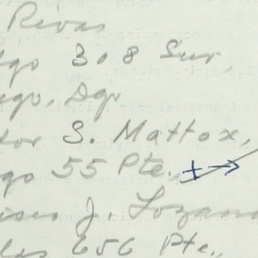 Rivas
go 308 Sur,
go, Dgo
tor S. Mattox,
go 55 Pte.,
J. Lozano
656 Pte.,